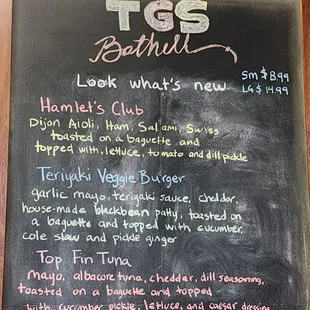 TGS
Bothell
Look what's new
Sm $8.99
LG $14.99
Hamlet's Club
Dijon Aioli, Ham, Salami, Swiss
toasted on a baguette and
topped with, lettuce, tomato and dill pickle
Teriyaki Veggie Burger
garlic mayo, teriyaki sauce, cheddar,
house-made blackbean patty, toasted on
a baguette and topped with cucumber,
cole slaw and pickle ginger
Top Fin Tuna
mayo, albacore tuna, cheddar, dill seasoning,
toasted on a baguette and topped
with cucumber, pickle, lettuce, and caesar dressing